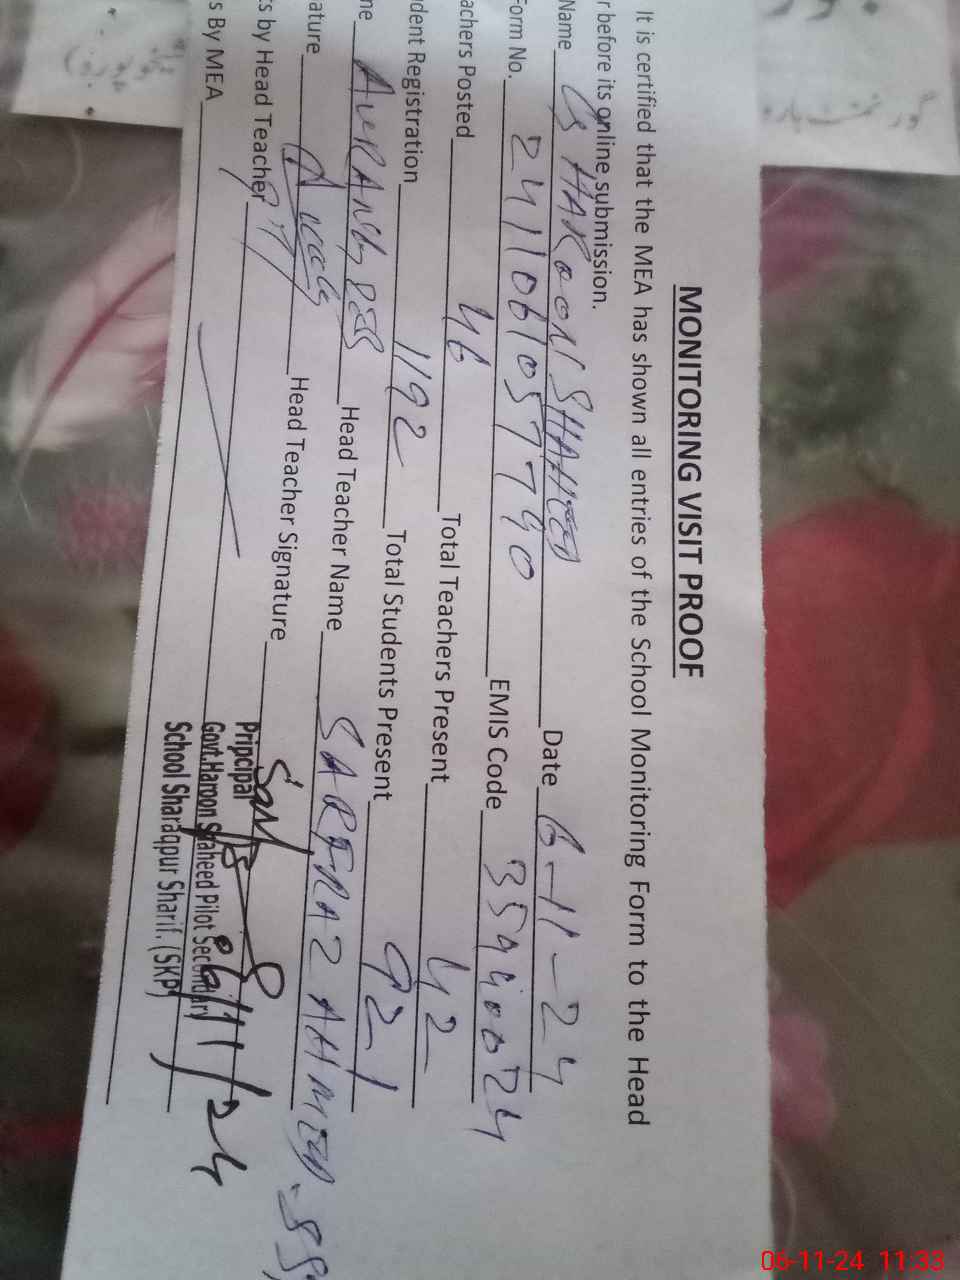 MONITORING VISIT PROOF
It is certified that the MEA has shown all entries of the School Monitoring Form to the Head
r before its online submission.
Name GS HAROON SHAHEED Date 6-11-24
Form No. 2411061057790 EMIS Code 35440024
achers Posted 46 Total Teachers Present 42
dent Registration 1192 Total Students Present 921
me Head Teacher Name SARFRAZ AHMED
ature Head Teacher Signature
ts by Head Teacher
s By MEA
Principal
Govt.Haroon Shaheed Pilot Secondary
School Sharaqpur Sharif. (SKP)
6/11/24
06-11-24 11:33